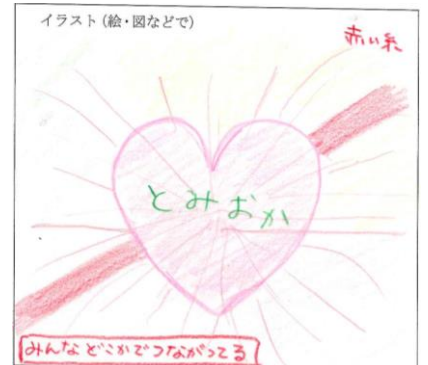 イラスト（絵・図などで）
赤い糸
とみおか
みんなどこかでつながってる